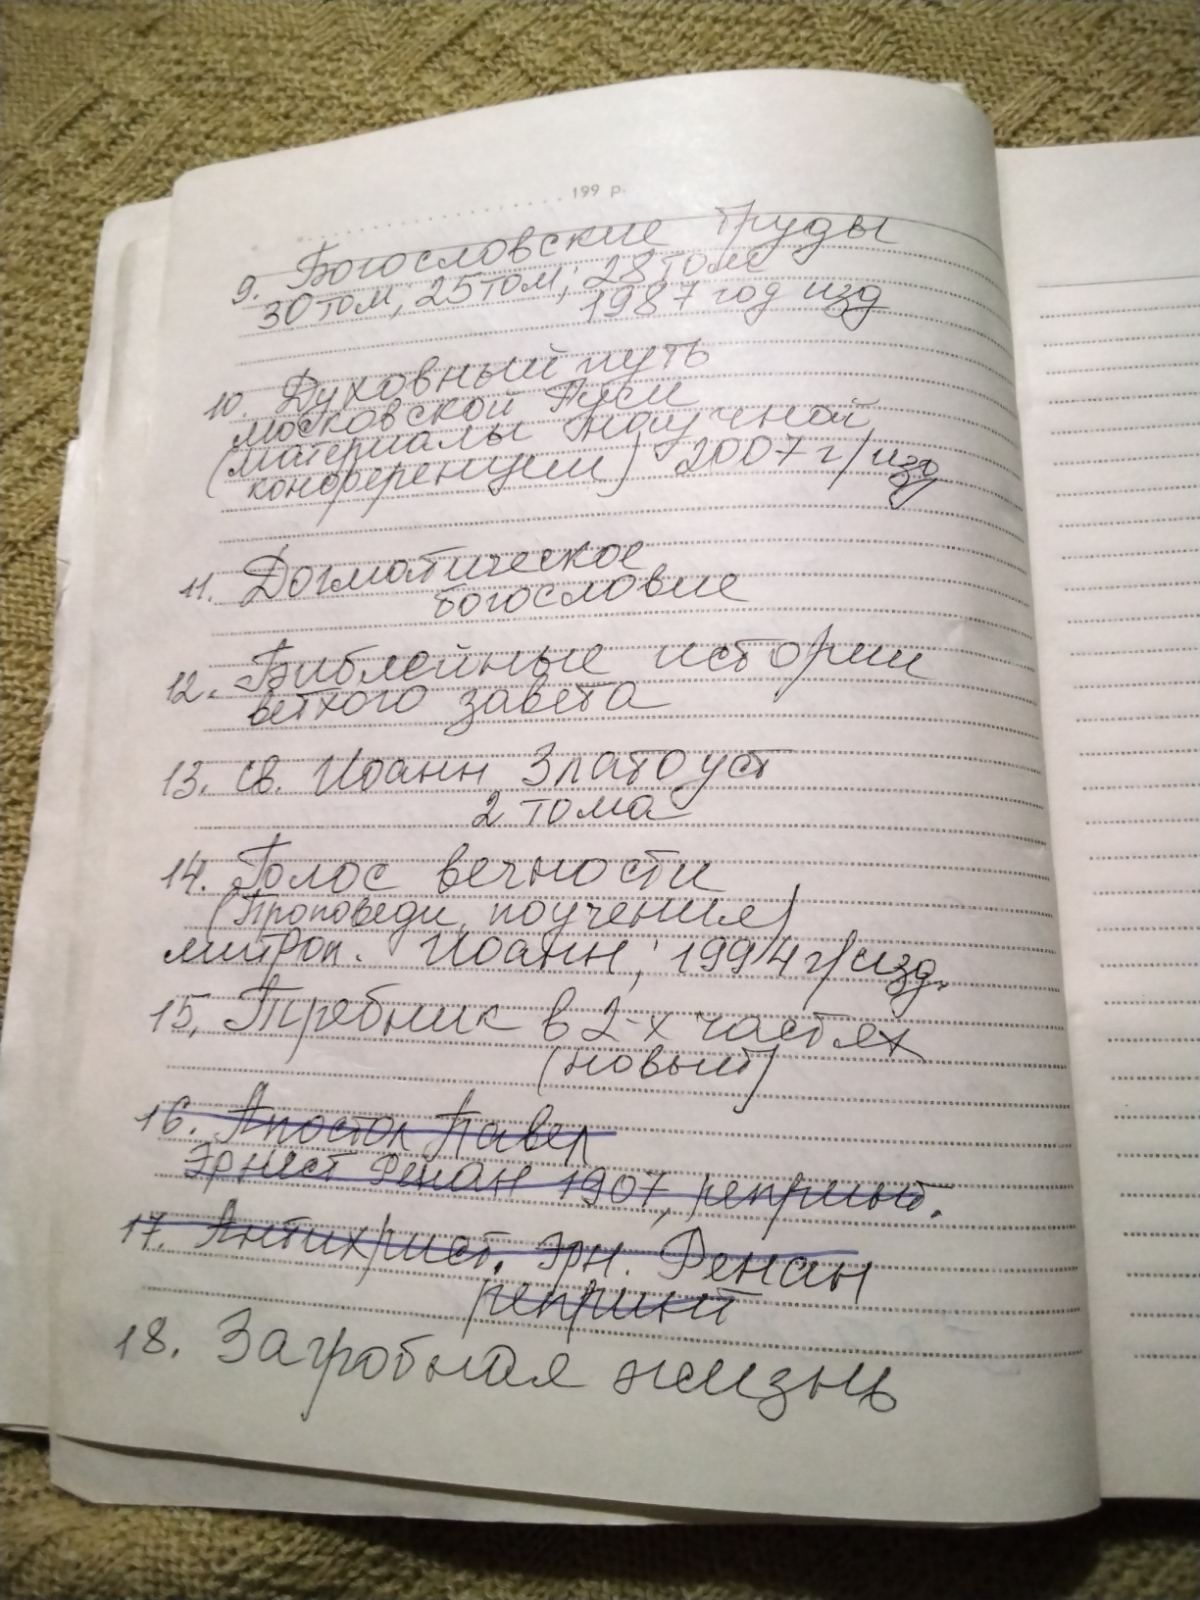 199 р.
9. Богословские труды
30 том; 25 том; 28 том
1987 год изд
10. Духовный путь
московской Руси
(материалы научной
конференции) 2007 г/изд
11. Догматическое
богословие
12. Библейные истории
ветхого завета
13. св. Иоанн Златоуст
2 тома
14. Голос вечности
(Проповеди, поучения)
митроп. Иоанн, 1994 г/изд.
15. Требник в 2-х частях
(новый)
16. Апостол Павел
Эрнест Ренан 1907, репринт.
17. Антихрист. Эрн. Ренан
репринт
18. Загробная жизнь